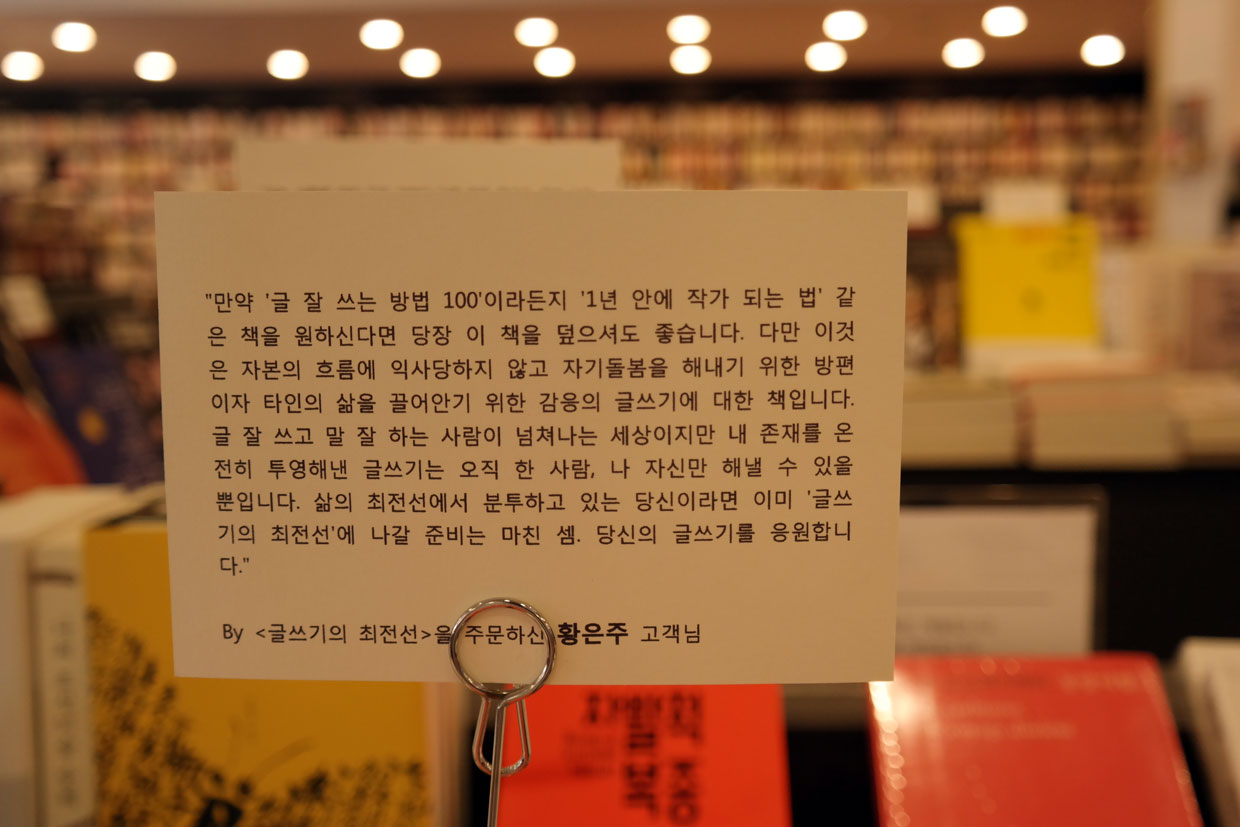 "만약 '글 잘 쓰는 방법 100'이라든지 '1년 안에 작가 되는 법' 같
은 책을 원하신다면 당장 이 책을 덮으셔도 좋습니다. 다만 이것
은 자본의 흐름에 익사당하지 않고 자기돌봄을 해내기 위한 방편
이자 타인의 삶을 끌어안기 위한 감응의 글쓰기에 대한 책입니다.
글 잘 쓰고 말 잘 하는 사람이 넘쳐나는 세상이지만 내 존재를 온
전히 투영해낸 글쓰기는 오직 한 사람, 나 자신만 해낼 수 있을
뿐입니다. 삶의 최전선에서 분투하고 있는 당신이라면 이미 '글쓰
기의 최전선'에 나갈 준비는 마친 셈. 당신의 글쓰기를 응원합니
다."
By <글쓰기의 최전선>을 주문하신 황은주 고객님